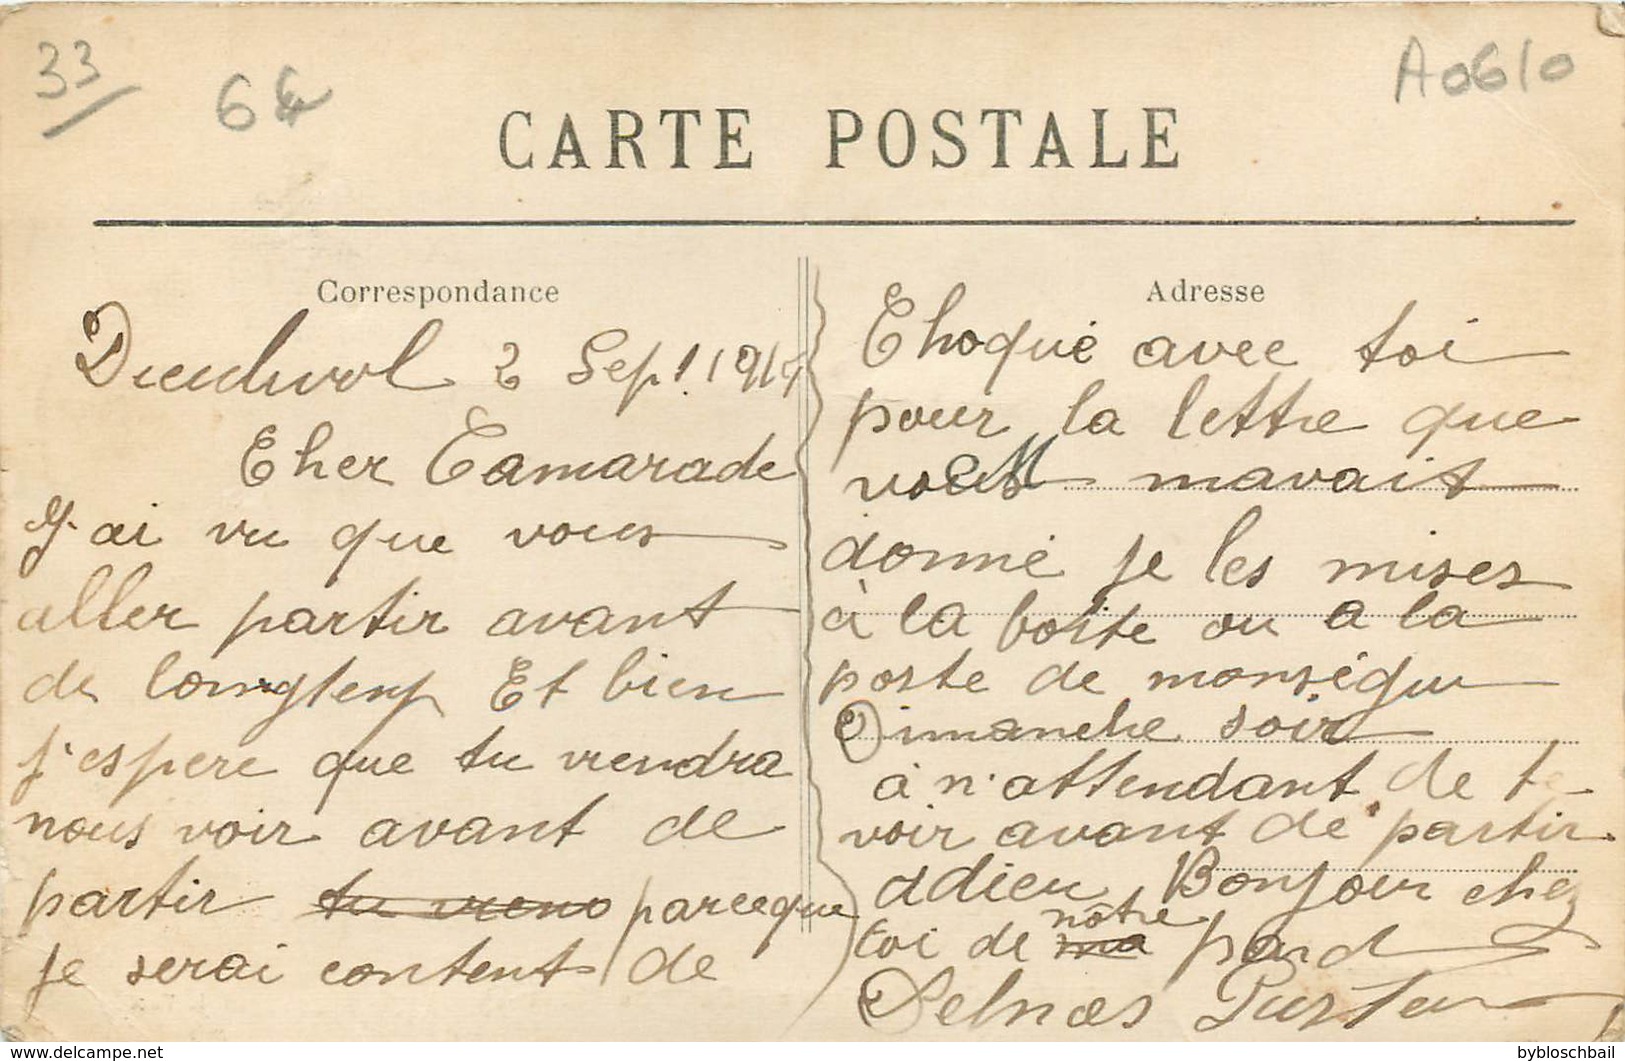 33
6€
A0610
CARTE POSTALE
Correspondance
Dieulivol 2 Sept. 1914
Cher Camarade
J'ai vu que vous
aller partir avant
de longtemp Et bien
j'espere que tu viendra
nous voir avant de
partir tu viens parceque
je serai content de
Adresse
Choqué avec toi
pour la lettre que
vous mavait
donné je les mises
à la boite ou a la
poste de monségur
Dimanche soir
à n'attendant de te
voir avant de partir
adieu Bonjour chez
toi de ma nôtre pard
Delmas Gaston
bybloschbail